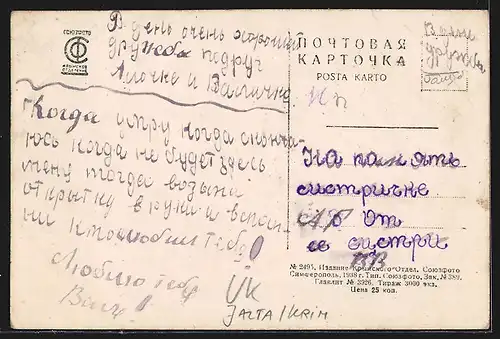 СОЮЗФОТО
КРЫМСКОЕ
ОТДЕЛЕНИЕ
В день очень хорошей
дружбы подруг
Алочке и Валичка
Когда умру когда сконча-
юсь когда не будет здесь
меня тогда возьми
открытку в руки и вспом-
ни кто любил тебя
Люблю тебя
Валя
ПОЧТОВАЯ
КАРТОЧКА
POSTA KARTO
На память
систричке
А Р От
ее систри
ВВ
№ 2495. Издание Крымского Отдел. Союзфото
Симферополь, 1938 г. Тип. Союзфото, Зак. № 389.
Главлит № 3926. Тираж 3000 экз.
Цена 25 коп.
UK
JALTA/KRIM